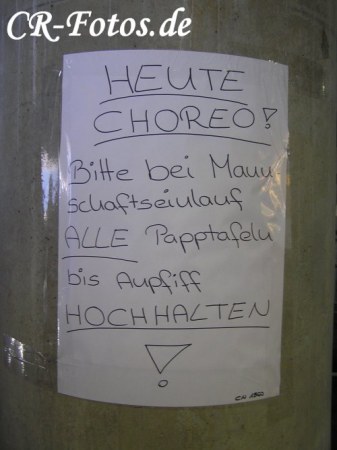 CR-Fotos.de
HEUTE
CHOREO!
Bitte bei Mann-
schaftseinlauf
ALLE Papptafeln
bis Anpfiff
HOCHHALTEN
!